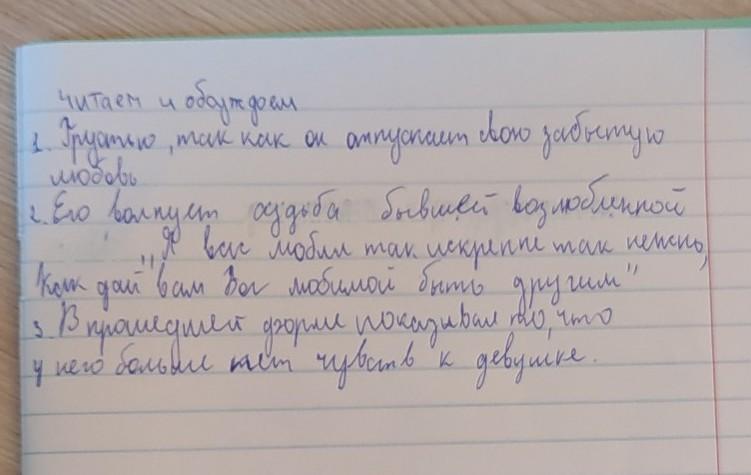 читаем и обсуждаем
1. Грустью, так как он отпускает свою забытую
любовь
2. Его волнует судьба бывшей возлюбленной
„Я вас любил так искренне так нежно,
Как дай вам Бог любимой быть другим"
3. В прошедшей форме показывал то, что
у него больше нет чувств к девушке.